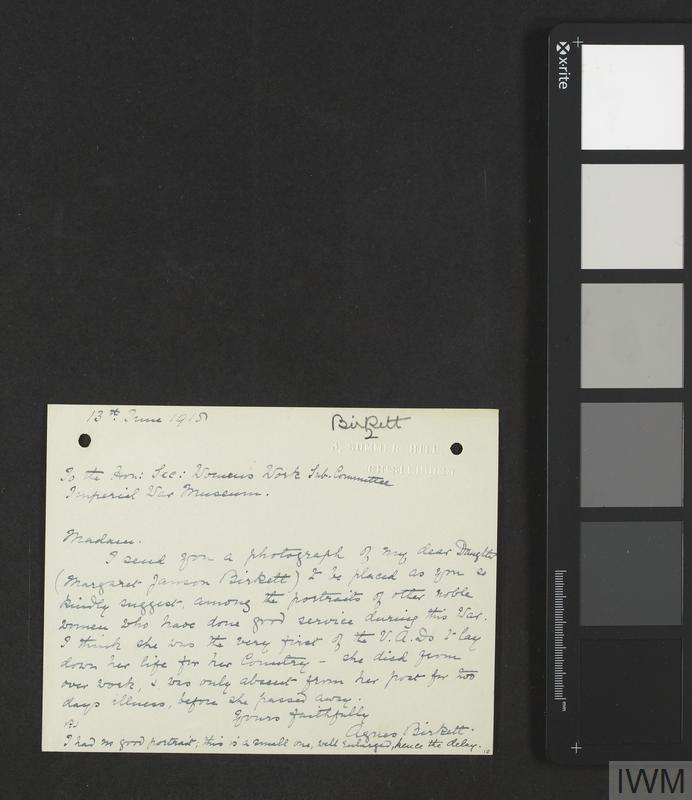 x-rite
13th June 1918
Birkett
2
3, SUMMER HILL
CHISLEHURST
To the Hon: Sec: Women's Work Sub-Committee
Imperial War Museum.
Madam.
I send you a photograph of my dear Daughter
(Margaret Janson Birkett) to be placed as you so
kindly suggest, among the portraits of other noble
women who have done good service during this War.
I think she was the very first of the V.A.Ds to lay
down her life for her Country - she died from
over work, & was only absent from her post for two
days illness, before she passed away.
Yours faithfully
Agnes Birkett.
PS
I had no good portrait; this is a small one, well enlarged, hence the delay.
mm
IWM